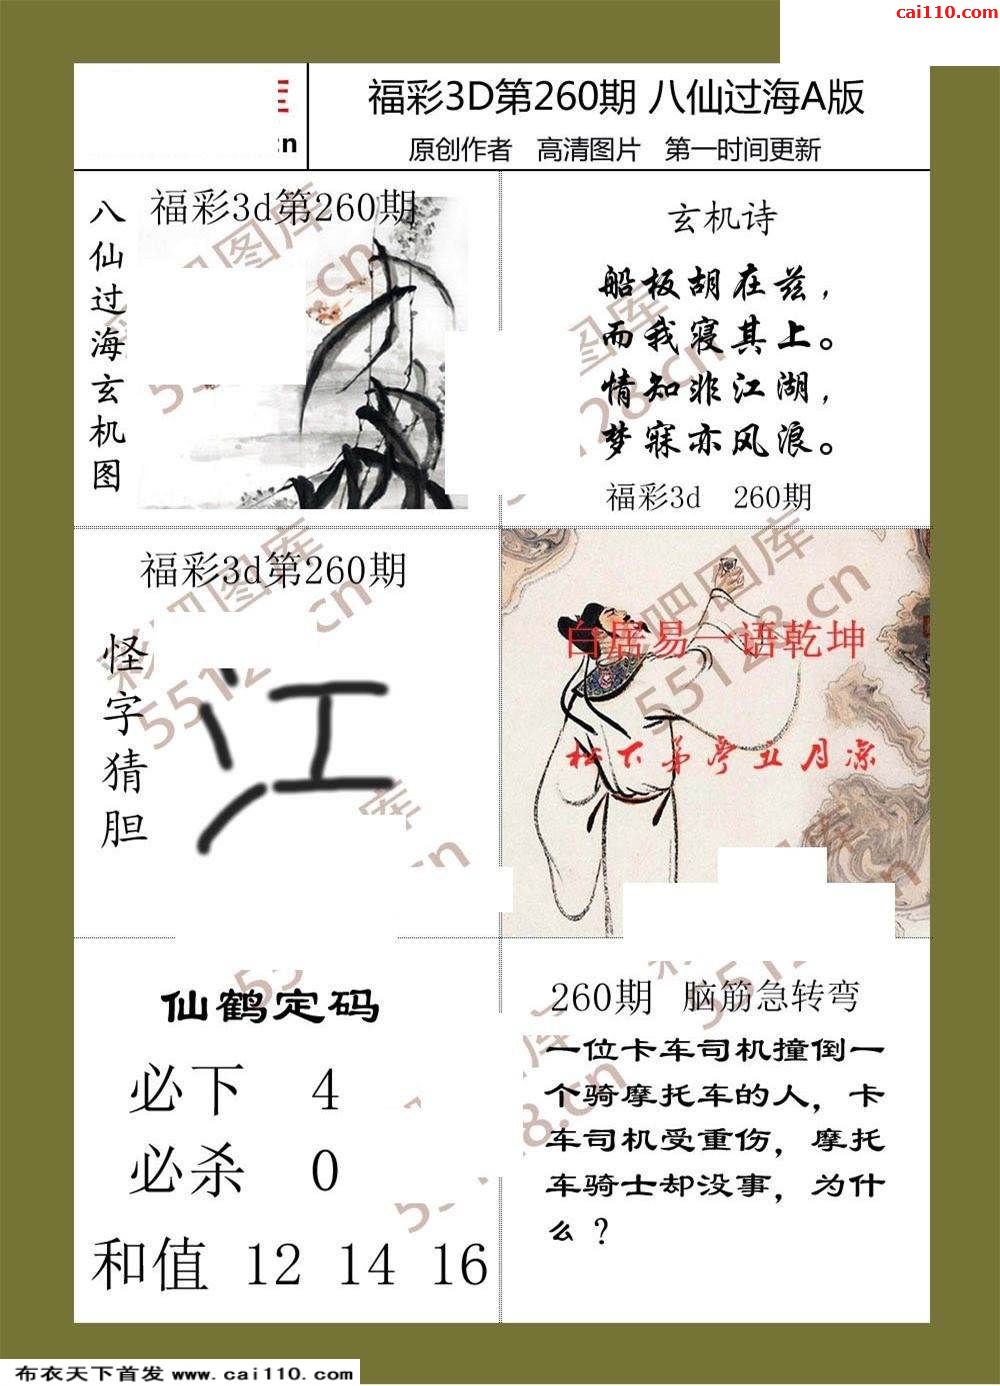 cai110.com
福彩3D第260期 八仙过海A版
原创作者 高清图片 第一时间更新
福彩3d第260期
八仙过海玄机图
玄机诗
船板胡在兹，
而我寝其上。
情知非江湖，
梦寐亦风浪。
福彩3d 260期
福彩3d第260期
怪字猜胆
江
白居易一语乾坤
松下茅亭五月凉
仙鹤定码
必下 4
必杀 0
和值 12 14 16
260期 脑筋急转弯
一位卡车司机撞倒一
个骑摩托车的人，卡
车司机受重伤，摩托
车骑士却没事，为什
么？
布衣天下首发 www.cai110.com